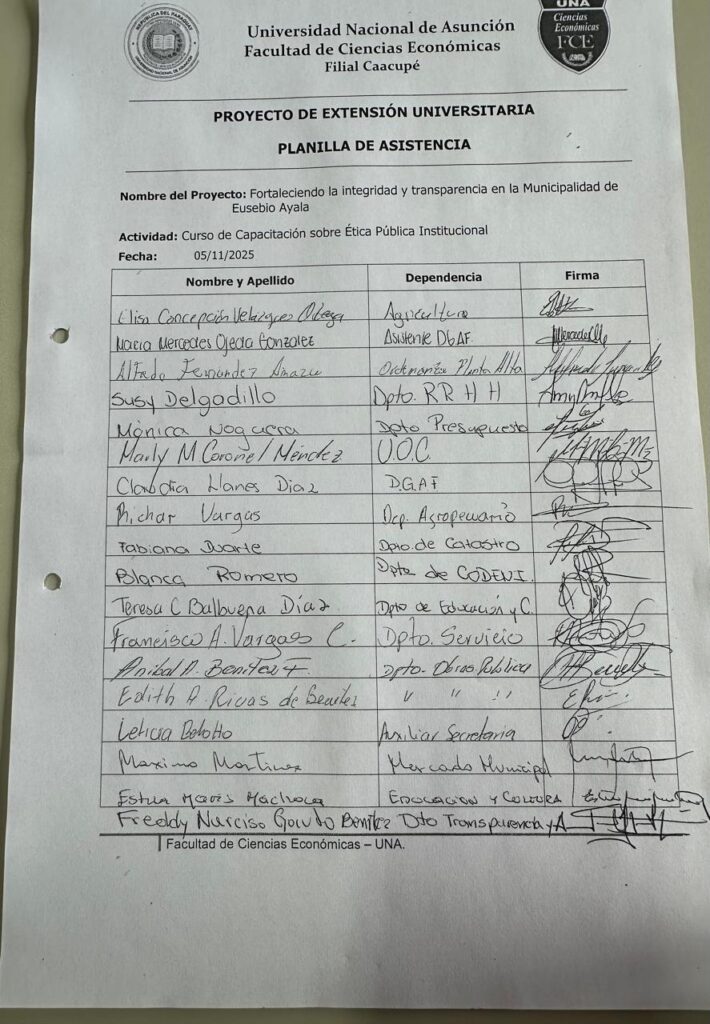 Universidad Nacional de Asunción
Facultad de Ciencias Económicas
Filial Caacupé
UNA
Ciencias
Económicas
FCE
PROYECTO DE EXTENSIÓN UNIVERSITARIA
PLANILLA DE ASISTENCIA
Nombre del Proyecto: Fortaleciendo la integridad y transparencia en la Municipalidad de
Eusebio Ayala
Actividad: Curso de Capacitación sobre Ética Pública Institucional
Fecha: 05/11/2025
Nombre y Apellido Dependencia Firma
Elisa Concepción Velazquez Agricultura
Maria Mercedes Ojeda Gonzalez Asistente DGAF
Alfredo Fernandez Planta Alta
Susy Delgadillo Dpto. RR H H
Mónica Noguera Dpto Presupuesto
Marly M Coronel Méndez U.O.C.
Claudia Llanes Diaz D.G.A.F
Richar Vargas Dep. Agropecuario
Fabiana Duarte Dpto. de Catastro
Blanca Romero Dpto de CODENI.
Teresa C Balbuena Díaz Dpto de Educación y C.
Francisco A. Vargas C. Dpto. Servicio
Anibal A. Benitez F. Dpto. Obras Publica
Edith A. Rivas de Benitez " " "
Leticia Auxiliar Secretaria
Maximo Martinez Mercado Municipal
Maris Educacion y Cultura
Freddy Narciso Benitez Dto Transparencia y A
Facultad de Ciencias Económicas – UNA.